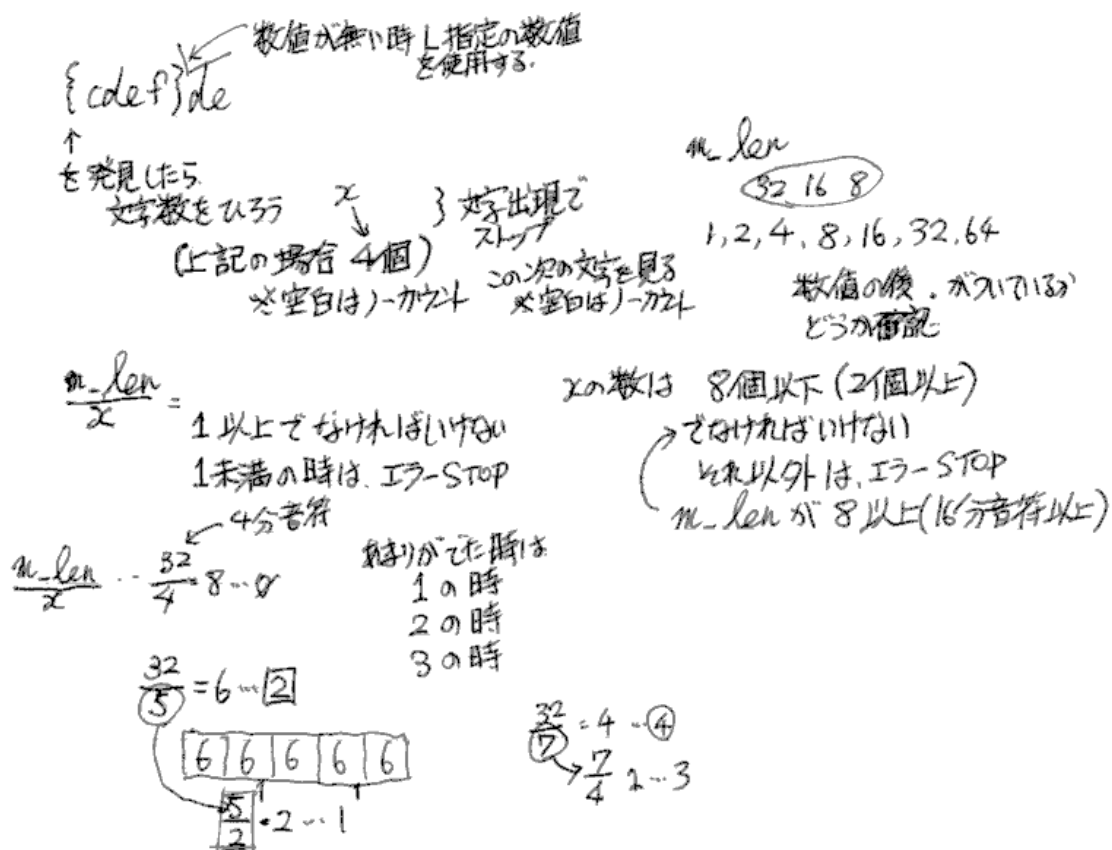 数値が無い時 L指定の数値
を使用する.
{cdef}de
↑
を発見したら
文字数をひろう
x
(上記の場合 4個)
※空白はノーカウント
} 文字出現で
ストップ
この次の文字を見る
※空白はノーカウント
m_len
32 16 8
1,2,4,8,16,32,64
数値の後 . がついているか
どうか確認
m_len/x =
1以上でなければいけない
1未満の時は、エラーSTOP
xの数は 8個以下(2個以上)
でなければいけない
それ以外は、エラーSTOP
m_lenが8以上(16分音符以上)
4分音符
m_len/x ・・ 32/4=8…0
あまりがでた時は
1の時
2の時
3の時
32/5 = 6…2
6 6 6 6 6
5/2・2…1
32/7 = 4…4
7/4 2…3